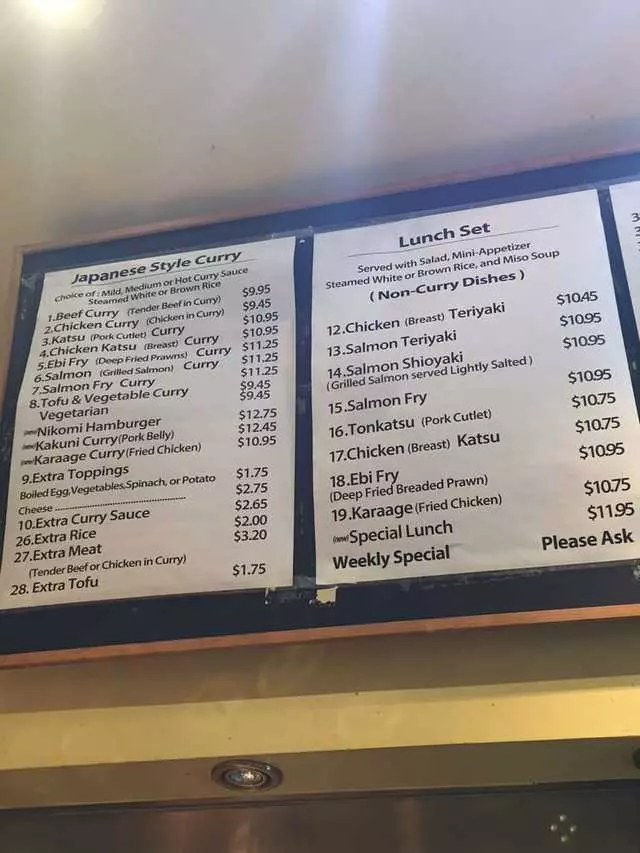 Japanese Style Curry
Choice of : Mild, Medium or Hot Curry Sauce
Steamed White or Brown Rice
1.Beef Curry (Tender Beef in Curry) $9.95
2.Chicken Curry (Chicken in Curry) $9.45
3.Katsu (Pork Cutlet) Curry $10.95
4.Chicken Katsu (Breast) Curry $10.95
5.Ebi Fry (Deep Fried Prawns) Curry $11.25
6.Salmon (Grilled Salmon) Curry $11.25
7.Salmon Fry Curry $11.25
8.Tofu & Vegetable Curry $9.45
Vegetarian $9.45
(new)Nikomi Hamburger $12.75
(new)Kakuni Curry(Pork Belly) $12.45
(new)Karaage Curry(Fried Chicken) $10.95
9.Extra Toppings
Boiled Egg,Vegetables,Spinach, or Potato $1.75
Cheese ................................................ $2.75
10.Extra Curry Sauce $2.65
26.Extra Rice $2.00
27.Extra Meat $3.20
(Tender Beef or Chicken in Curry)
28. Extra Tofu $1.75
Lunch Set
Served with Salad, Mini-Appetizer
Steamed White or Brown Rice, and Miso Soup
( Non-Curry Dishes )
12.Chicken (Breast) Teriyaki $10.45
13.Salmon Teriyaki $10.95
14.Salmon Shioyaki $10.95
(Grilled Salmon served Lightly Salted )
15.Salmon Fry $10.95
16.Tonkatsu (Pork Cutlet) $10.75
17.Chicken (Breast) Katsu $10.75
18.Ebi Fry $10.95
(Deep Fried Breaded Prawn)
19.Karaage (Fried Chicken) $10.75
(new)Special Lunch $11.95
Weekly Special Please Ask